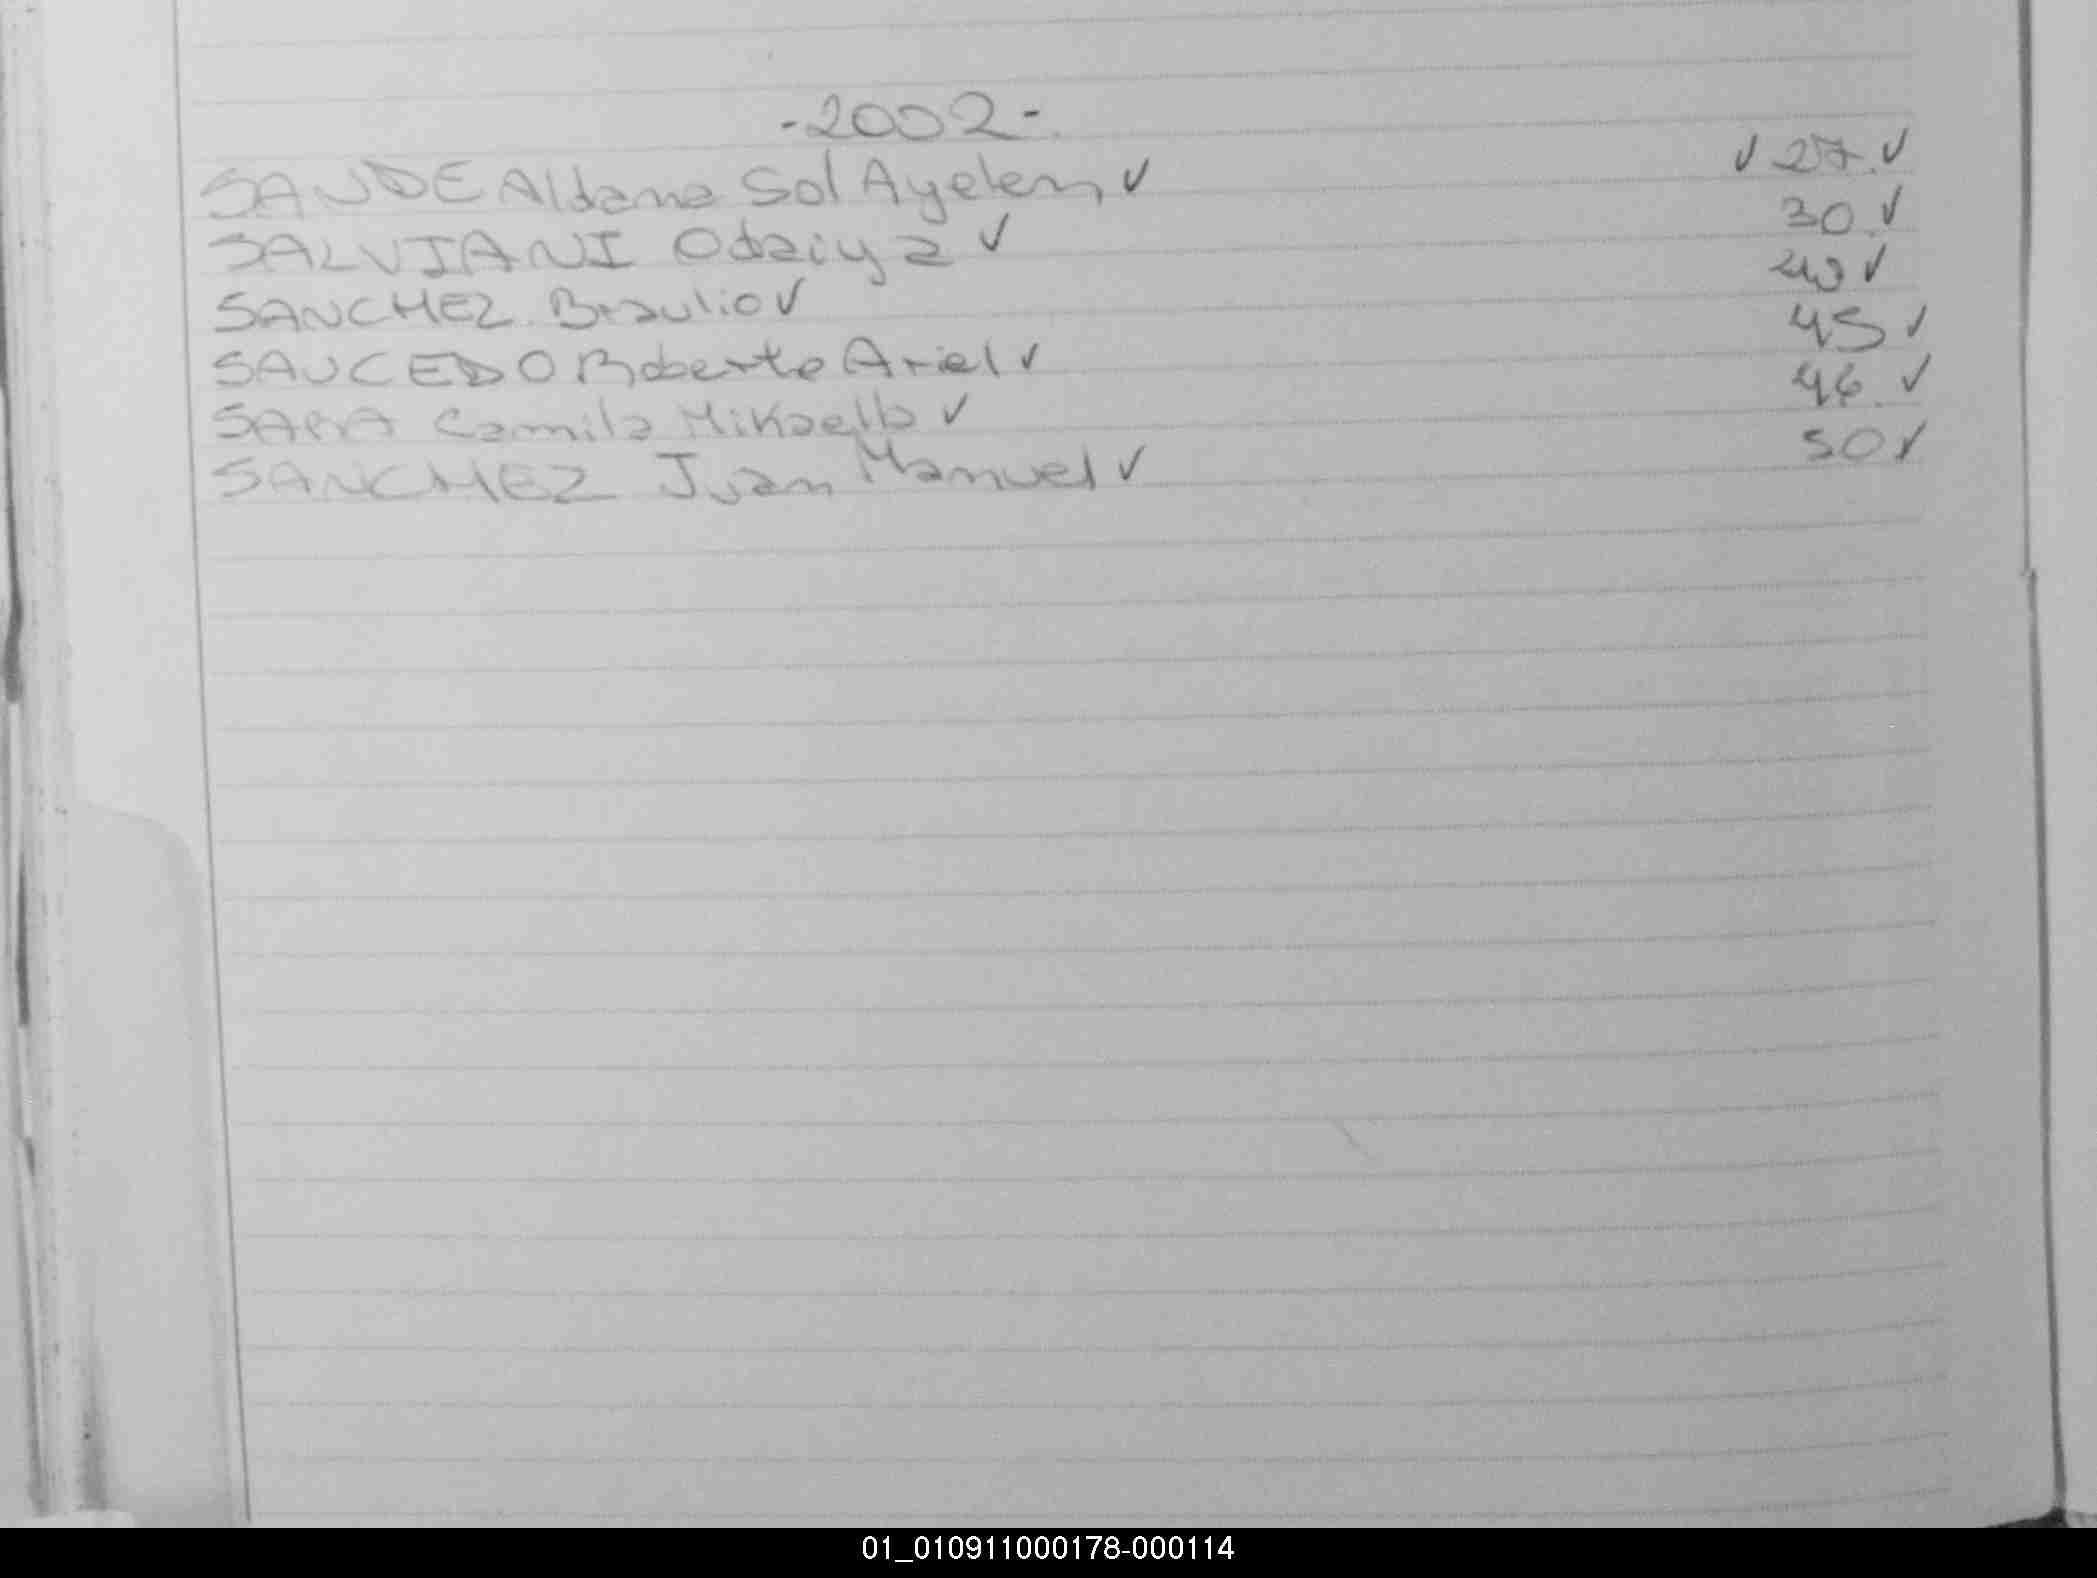 -2002-
SAUDE Aldana Sol Ayelen ✓ ✓ 27 ✓
SALVIANI ✓ 30 ✓
SANCHEZ Braulio ✓ ✓
SAUCEDO Roberto Ariel ✓ 45 ✓
SARA Camila Mikaella ✓ 46 ✓
SANCHEZ Juan Manuel ✓ 50 ✓
01_010911000178-000114